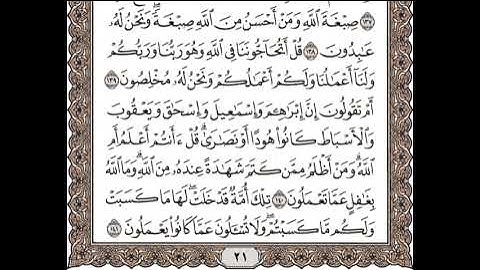 ﴿١٣٧﴾ صِبْغَةَ ٱللَّهِ وَمَنْ أَحْسَنُ مِنَ ٱللَّهِ صِبْغَةً وَنَحْنُ لَهُۥ
عَٰبِدُونَ ﴿١٣٨﴾ قُلْ أَتُحَآجُّونَنَا فِى ٱللَّهِ وَهُوَ رَبُّنَا وَرَبُّكُمْ
وَلَنَآ أَعْمَٰلُنَا وَلَكُمْ أَعْمَٰلُكُمْ وَنَحْنُ لَهُۥ مُخْلِصُونَ ﴿١٣٩﴾
أَمْ تَقُولُونَ إِنَّ إِبْرَٰهِـۧمَ وَإِسْمَٰعِيلَ وَإِسْحَٰقَ وَيَعْقُوبَ
وَٱلْأَسْبَاطَ كَانُوا۟ هُودًا أَوْ نَصَٰرَىٰ ۗ قُلْ ءَأَنتُمْ أَعْلَمُ أَمِ
ٱللَّهُ ۗ وَمَنْ أَظْلَمُ مِمَّن كَتَمَ شَهَٰدَةً عِندَهُۥ مِنَ ٱللَّهِ ۗ وَمَا ٱللَّهُ
بِغَٰفِلٍ عَمَّا تَعْمَلُونَ ﴿١٤٠﴾ تِلْكَ أُمَّةٌ قَدْ خَلَتْ ۖ لَهَا مَا كَسَبَتْ
وَلَكُم مَّا كَسَبْتُمْ ۖ وَلَا تُسْـَٔلُونَ عَمَّا كَانُوا۟ يَعْمَلُونَ ﴿١٤١﴾
٢١